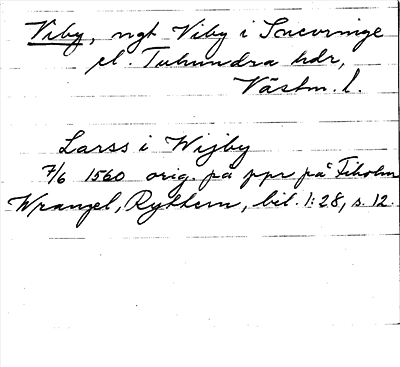 Viby, ngt Viby i Snevringe
el. Tuhundra hdr,
Västm. l.
Larss i Wijby
7/6 1560 orig. på ppr på Fiholm
Wrangel, Rytthern, bil. 1:28, s. 12.